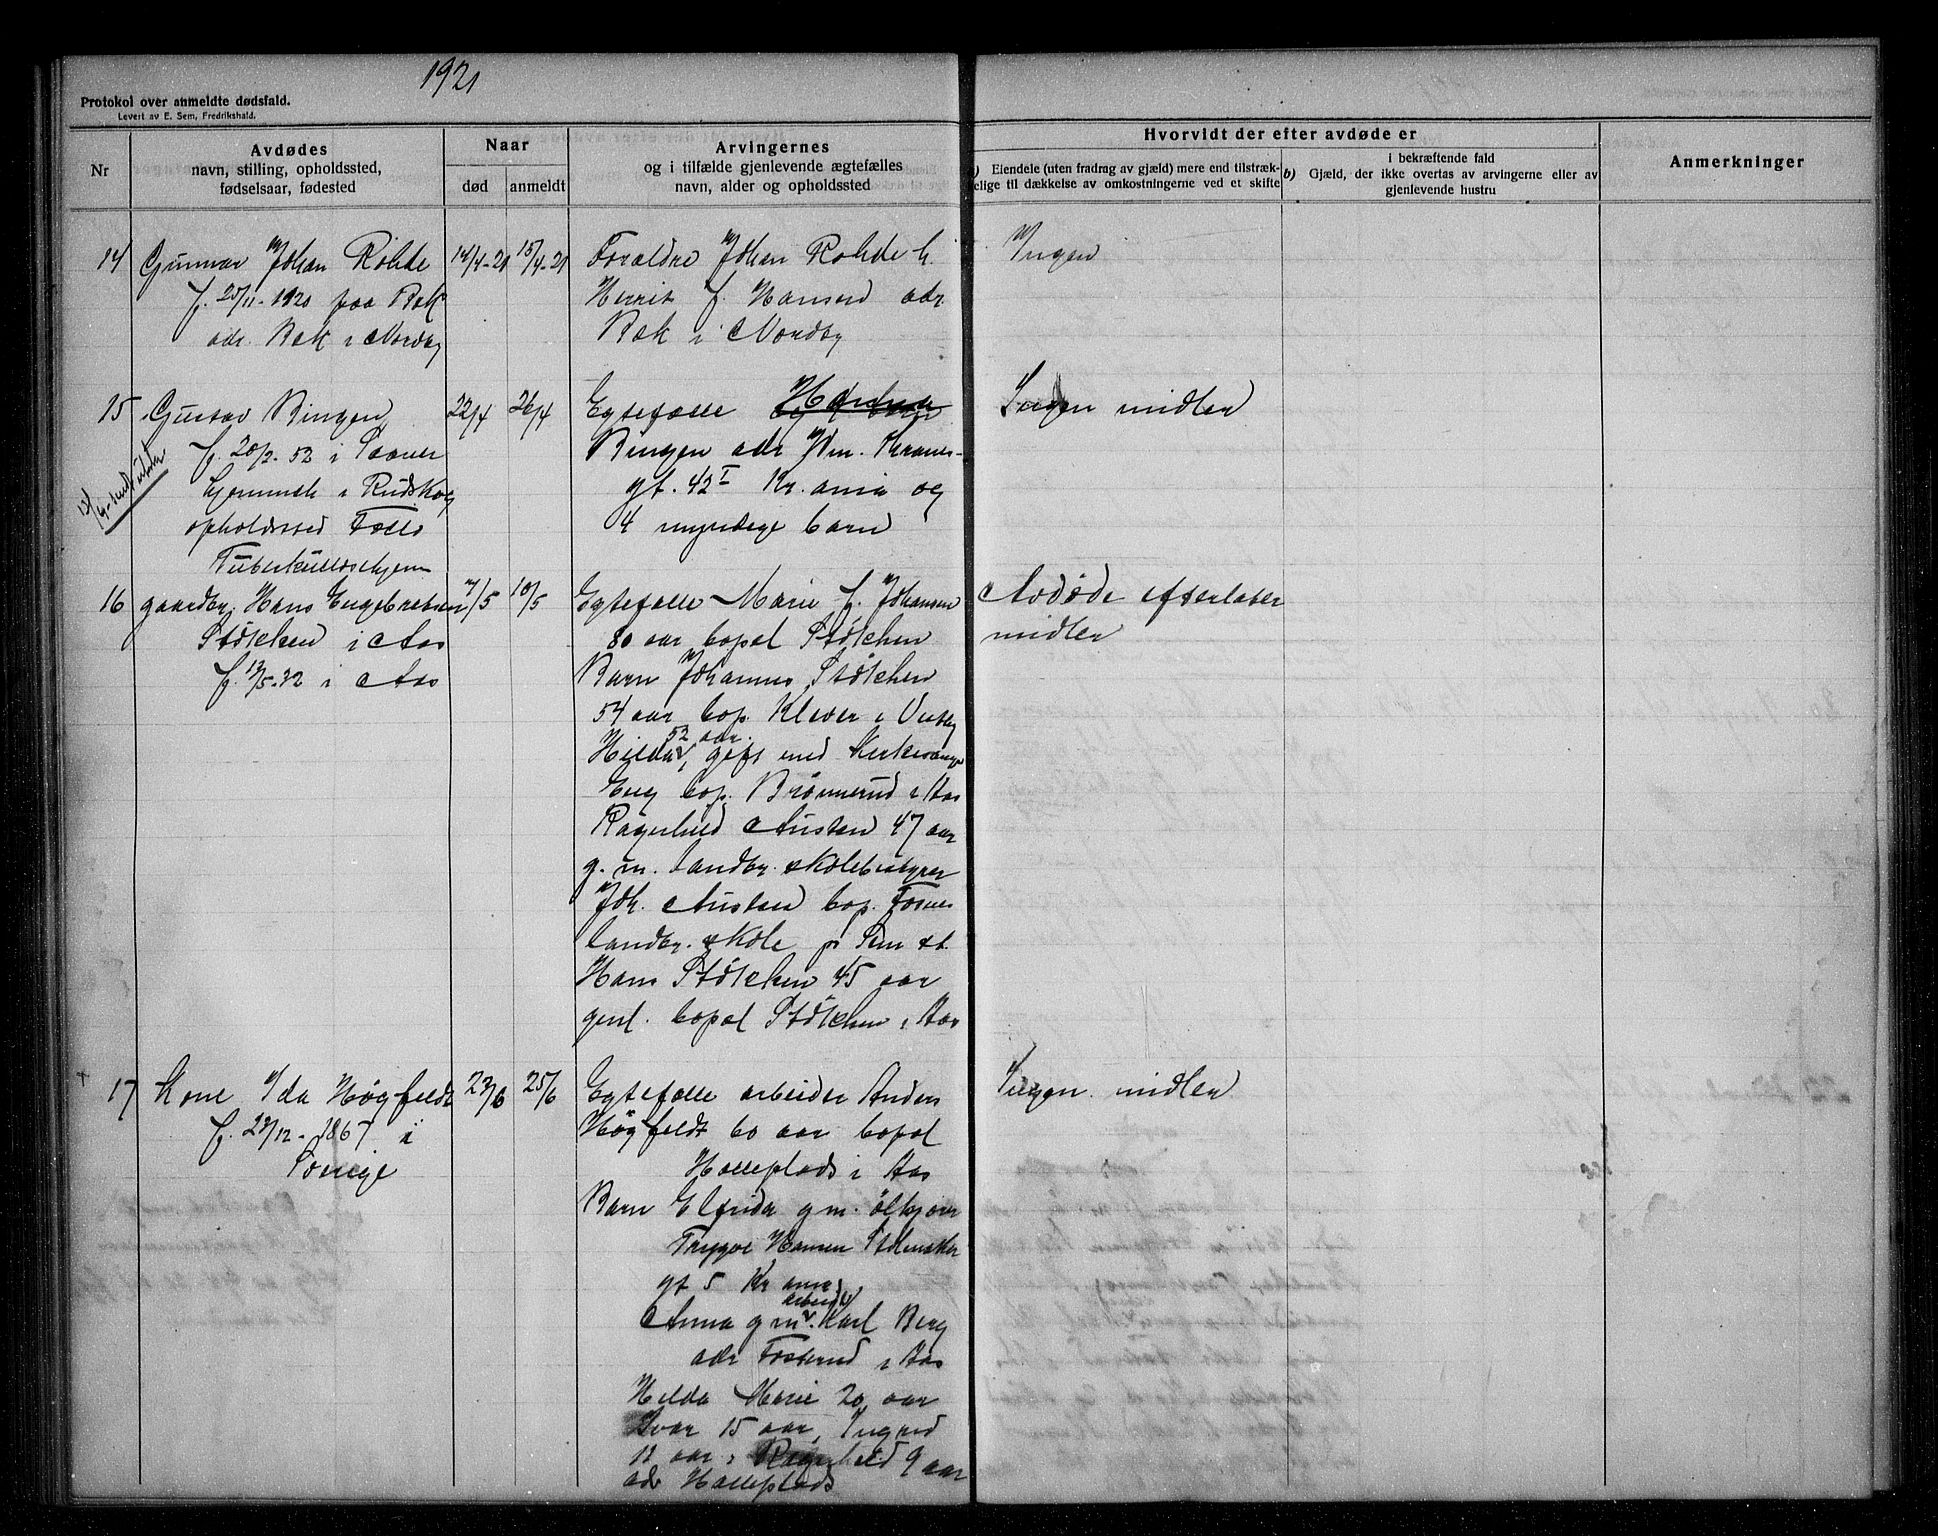 1921
Protokol over anmeldte dødsfald.
Levert av E. Sem, Fredrikshald.
Nr
Avdødes
navn, stilling, opholdssted,
fødselsaar, fødested
Naar
død
anmeldt
Arvingernes
og i tilfælde gjenlevende ægtefælles
navn, alder og opholdssted
Hvorvidt der efter avdøde er
a) Eiendele (uten fradrag av gjæld) mere end tilstræk-
kelige til dækkelse av omkostningerne ved et skifte
b)
i bekræftende fald
Gjæld, der ikke overtas av arvingerne eller av
gjenlevende hustru
Anmerkninger
14
Gunnar Johan Rohde
f. 25/11-1920 paa Bek
adr. Bek i Nordby
14/4-21
15/4-21
Forældre Johan Rohde h.
f. Hansen adr.
Bek i Nordby
Ingen
15
Gustav Ringen
f. 20/2-52 i
hjemmeh i Rudskog
opholdssted Follo
Tuberkulosehjem
22/4
26/4
Egtefælle
Ringen adr Wm. Thranes-
gt. 42 I Kr.ania og
4 myndige barn
Ingen midler
16
gaardbr. Hans Engebretsen
Stölchen i Aas
f. 13/5-32 i Aas
7/5
10/5
Egtefælle Marie f. Johansen
80 aar bopel Stölchen
Barn Johannes Stölchen
54 aar bop. Klever i Vestby
52 aar.
Hilda, gift med Kirkesanger
Eng bop. Brönnerud i Aas
Ragnhild Austen 47 aar
g. m. landbr. skolebestyrer
Joh. Austen bop. Fosnes
landbr. skole pr Sem st.
Hans Stölchen 45 aar
bopel Stölchen i Aas
Avdöde efterlater
midler
17
Kone Ida Högfeldt
f. 23/12-1867 i
Sverige
23/6
25/6
Egtefælle arbeider Anders
Högfeldt 60 aar bopel
Holleplads i Aas
Barn Elfrida g m. ölkjörer
Trygve Hansen
gt 5 Kr ania,
arbeider
Anna g m. Karl Berg
adr Fosterud i Aas
Hilda Marie 20 aar
Ivar 15 aar, Ingrid
12 aar, Ragnhild 9 aar
adr Holleplads
Ingen midler